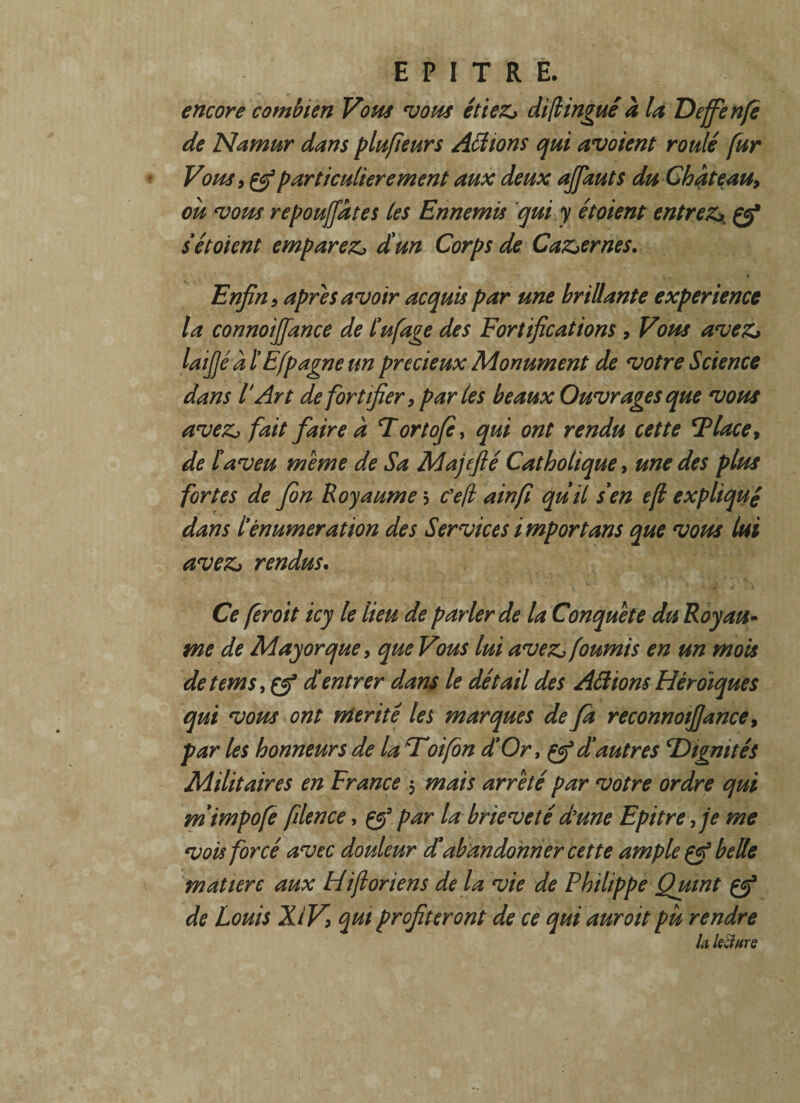 EPITRE.
encore combien Vous vous étiez diſtingué à la Deffenſe
de Namur dans pluſieurs Actions qui avoient roulé ſur
Vous, & particulierement aux deux aſſauts du Château,
où vous repouſſâtes les Ennemis qui y étoient entrez, &
s'étoient emparez d'un Corps de Cazernes.
Enfin, après avoir acquis par une brillante experience
la connoiſſance de l'uſage des Fortifications, Vous avez
laiſſé à l'Eſpagne un precieux Monument de votre Science
dans l'Art de fortifier, par les beaux Ouvrages que vous
avez fait faire à Tortoſe, qui ont rendu cette Place,
de l'aveu même de Sa Majeſté Catholique, une des plus
fortes de ſon Royaume; c'eſt ainſi qu'il s'en eſt expliqué
dans l'énumeration des Services importans que vous lui
avez rendus.
Ce ſeroit icy le lieu de parler de la Conquête du Royau-
me de Mayorque, que Vous lui avez ſoumis en un mois
de tems, & d'entrer dans le détail des Actions Héroïques
qui vous ont merité les marques de ſa reconnoiſſance,
par les honneurs de la Toiſon d'Or, & d'autres Dignités
Militaires en France; mais arrêté par votre ordre qui
m'impoſe ſilence, & par la brieveté d'une Epitre, je me
vois forcé avec douleur d'abandonner cette ample & belle
matiere aux Hiſtoriens de la vie de Philippe Quint &
de Louis XIV, qui profiteront de ce qui auroit pû rendre
la lecture